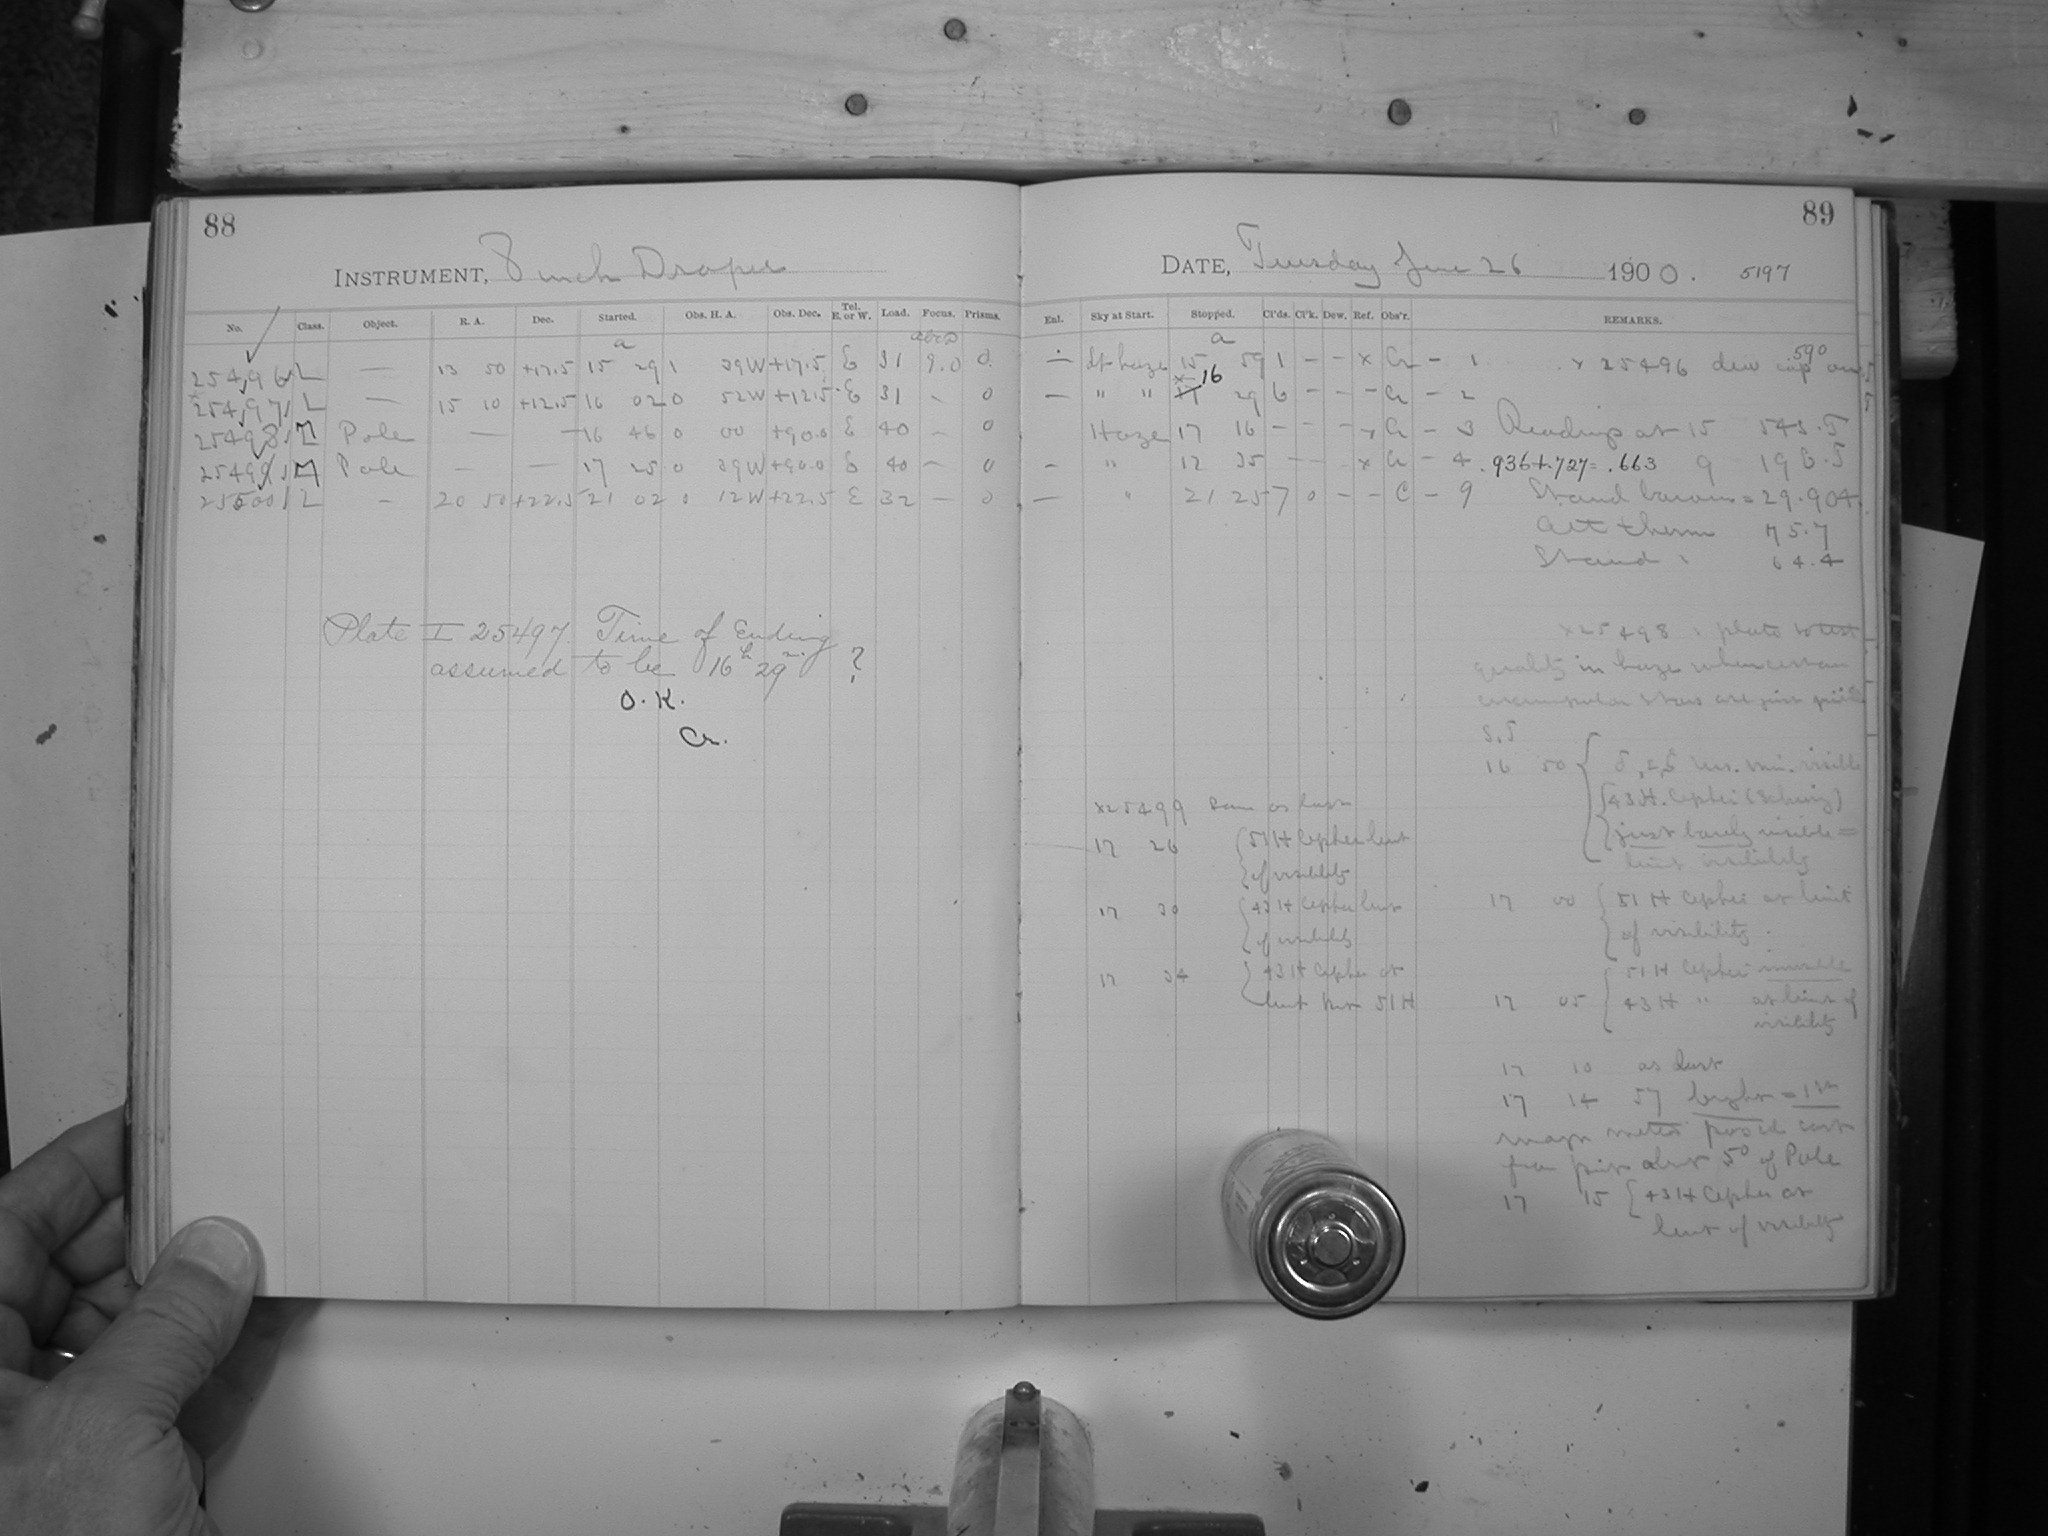 88
INSTRUMENT, 8 inch Draper
No. Class. Object. R. A. Dec. Started. Obs. H. A. Obs. Dec. Tel. E. or W. Load. Focus. Prisms.
25496 L — 13 50 +17.5 15 29 1 39W +17.5 E 31 9.0 0
25497 L — 15 10 +12.5 16 02 0 52W +12.5 E 31 - 0
25498 Pole — — 16 46 0 00 +90.0 E 40 — 0
25499 Pole — — 17 25 0 39W +90.0 E 40 — 0
25500 L - 20 50 +22.5 21 02 0 12W +22.5 E 32 — 0
Plate I 25497. Time of Ending
assumed to be 16h 29m. ?
O. K.
Cr.
89
DATE, Tuesday June 26 1900. 5197
Enl. Sky at Start. Stopped. Cl'ds. Cl'k. Dew. Ref. Obs'r. REMARKS.
— haze 15 59 1 - - x Cr - 1 x 25496 dew cap on
— " " 16 29 6 - - - Cr - 2
Haze 17 16 - - - x Cr - 3 Readings at 15 543.5
- " 17 35 — - x Cr - 4 .936+.727= .663 9 196.5
— " 21 25 7 0 - - C - 9 Stand barom = 29.904
Att therm 75.7
Stand " 64.4
x25498 : plate to test
quality in haze when certain
circumpolar stars are just
S.T
16 50 visible
43 H. Cephei
just barely visible =
limit visibility
x25499 same as last
17 26 51 H Cephei limit
of visibility
17 30 43 H Cephei limit
of visibility
17 34 43 H Cephei at
limit 51 H
17 00 51 H Cephei at limit
of visibility.
17 05 51 H Cephei invisible
43 H " at limit of
visibility
17 10 as last
17 14 57 bright = 1st
magn meteor passed east
from point about 5° of Pole
17 15 43 H Cephei at
limit of visibility